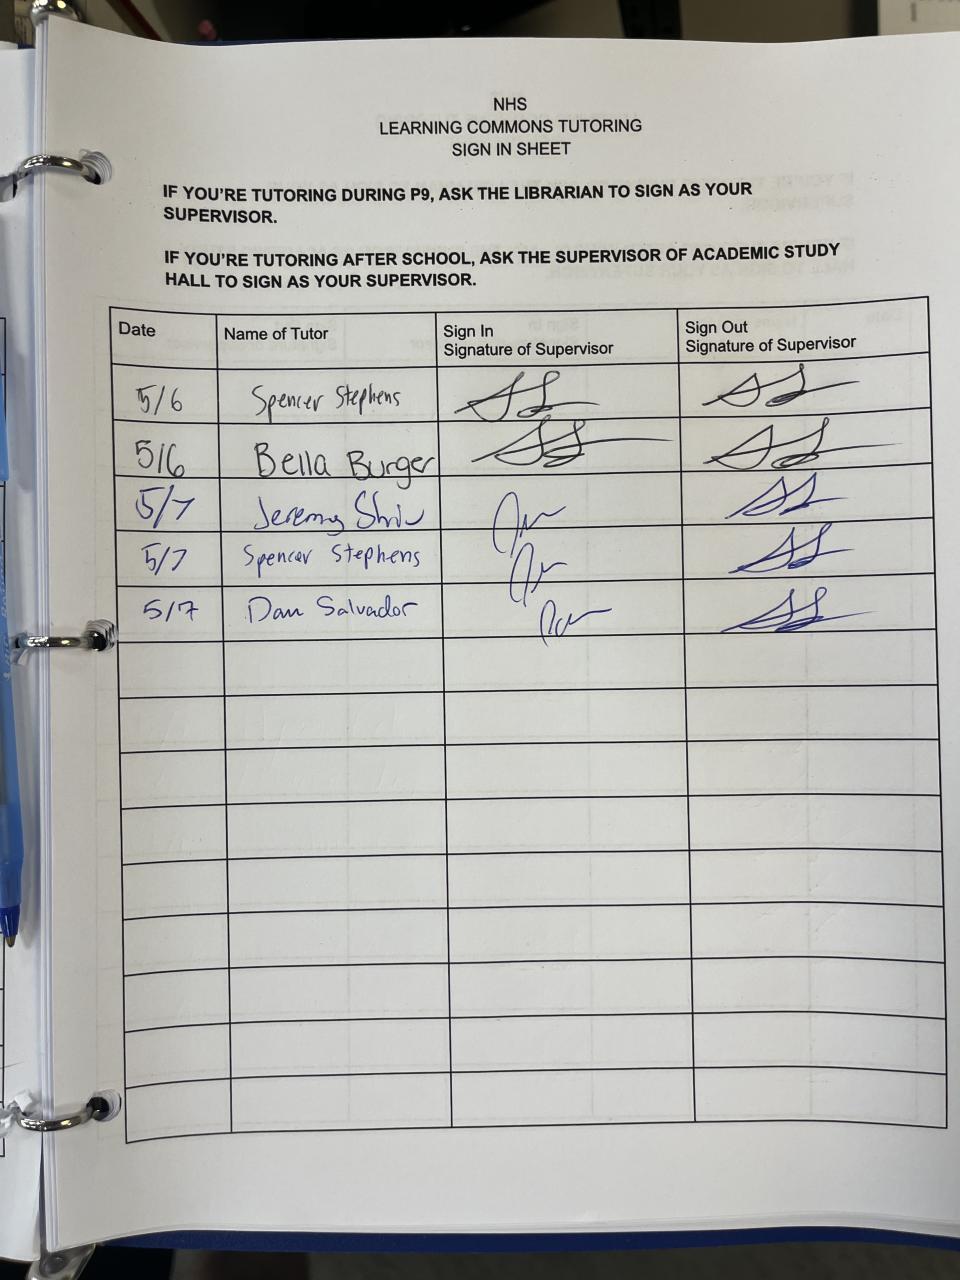 NHS
LEARNING COMMONS TUTORING
SIGN IN SHEET
IF YOU'RE TUTORING DURING P9, ASK THE LIBRARIAN TO SIGN AS YOUR
SUPERVISOR.
IF YOU'RE TUTORING AFTER SCHOOL, ASK THE SUPERVISOR OF ACADEMIC STUDY
HALL TO SIGN AS YOUR SUPERVISOR.
Date Name of Tutor Sign In Sign Out
Signature of Supervisor Signature of Supervisor
5/6 Spencer Stephens
5/6 Bella Burger
5/7 Jeremy
5/7 Spencer Stephens
5/7 Dan Salvador